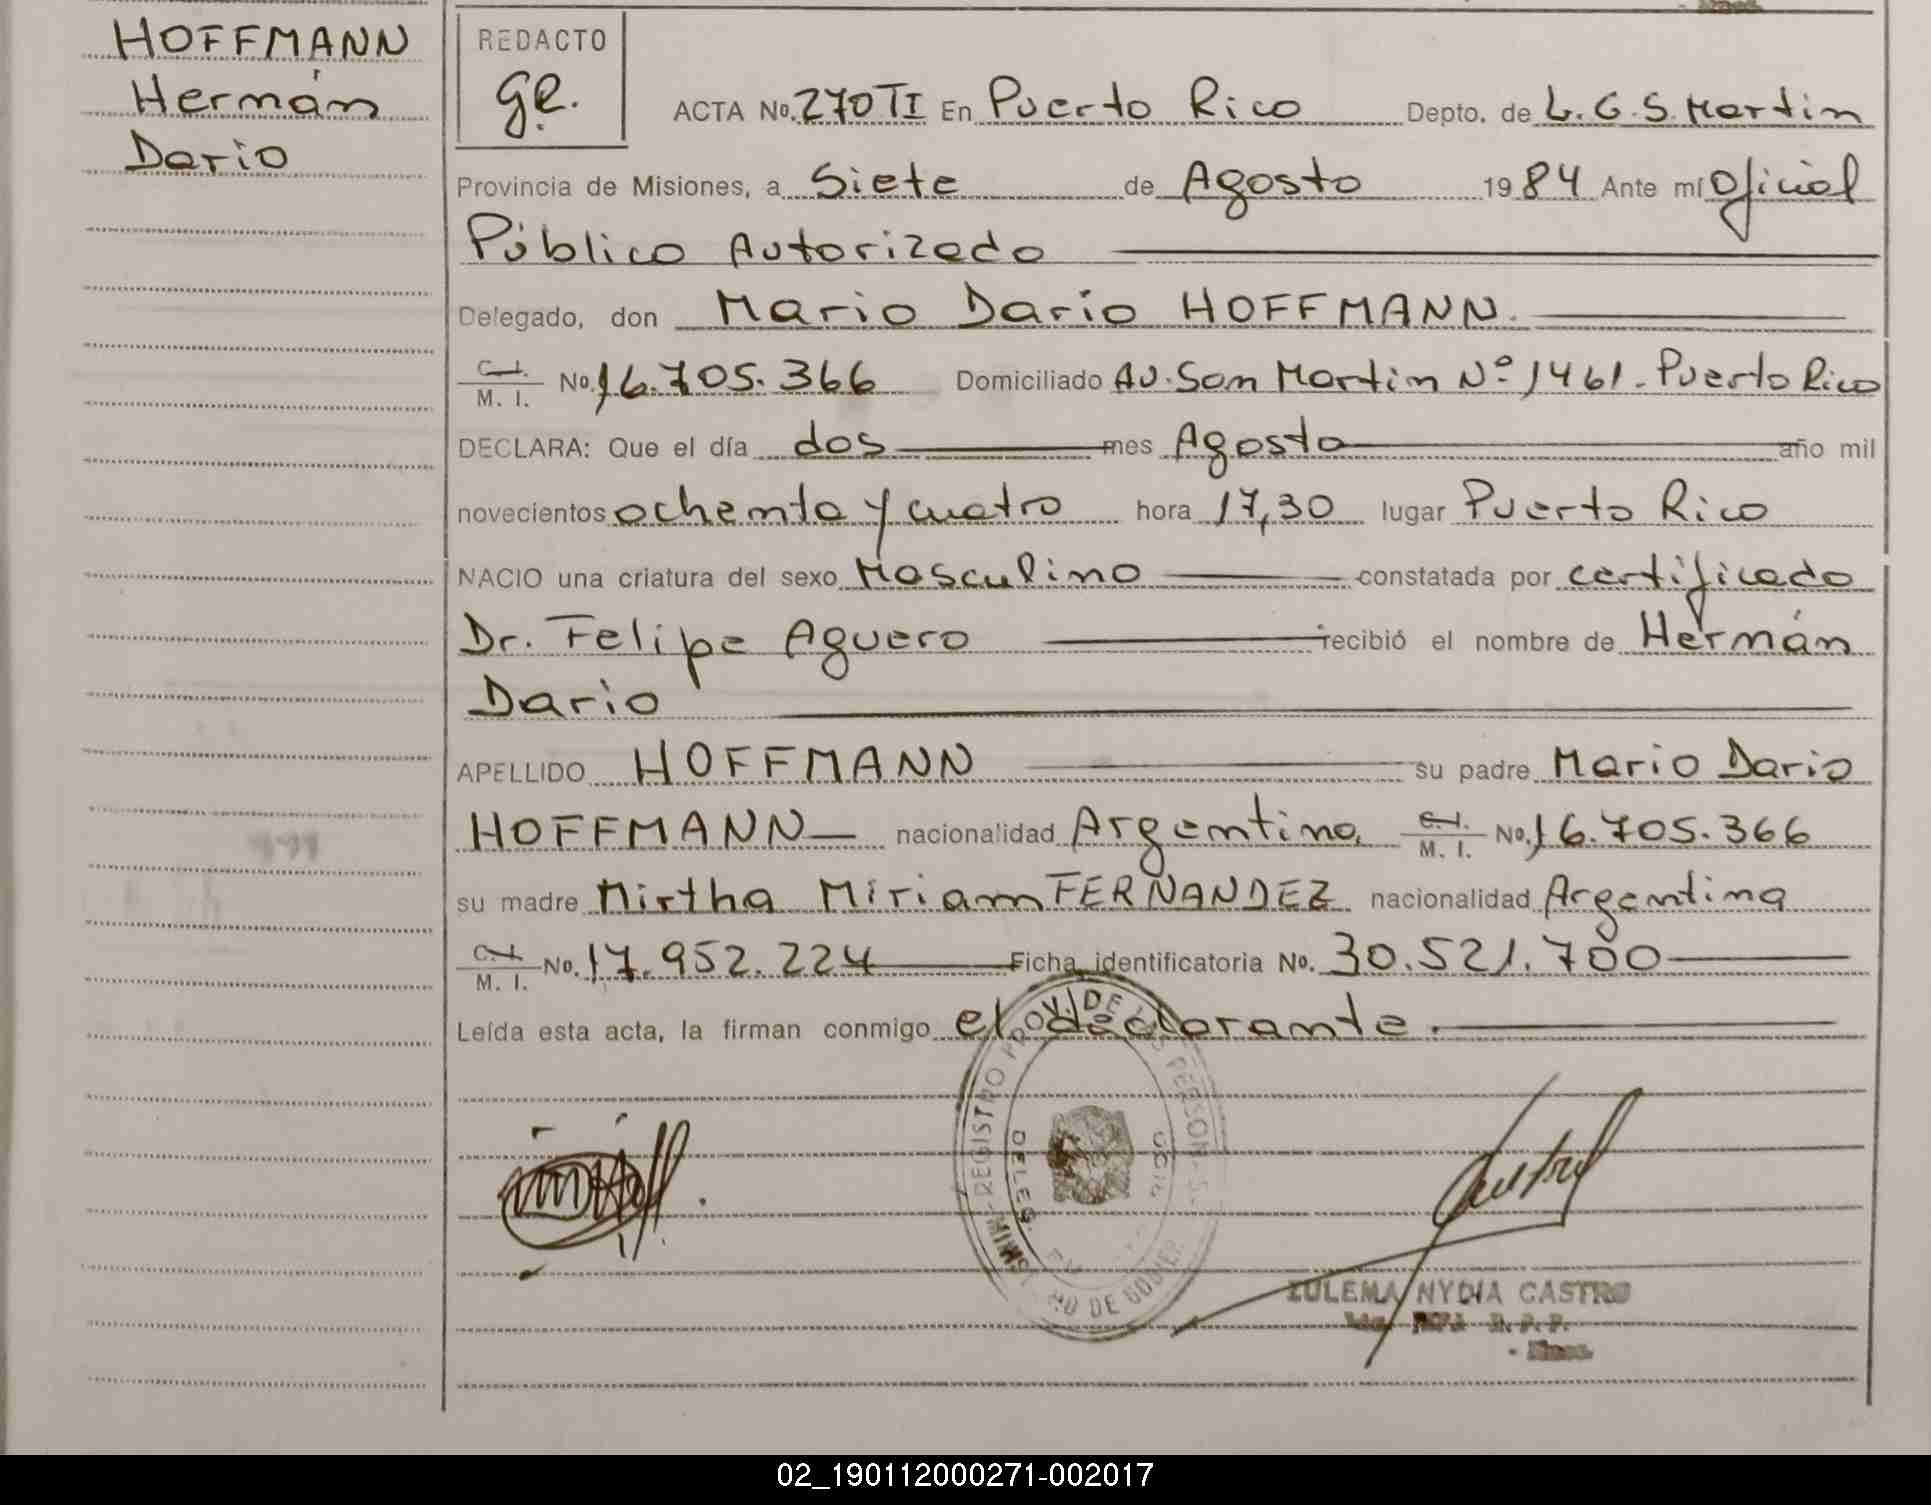 HOFFMANN
Hernán
Dario
REDACTO
ACTA No. 270 TI En Puerto Rico Depto. de L. G. S. Martin
Provincia de Misiones, a Siete de Agosto 1984 Ante mí Oficial
Público Autorizado
Delegado, don Mario Dario HOFFMANN.
C. I.
M. I. No. 16.705.366 Domiciliado Av. San Martin Nº 1461. Puerto Rico
DECLARA: Que el día dos mes Agosto año mil
novecientos ochenta y cuatro hora 17,30 lugar Puerto Rico
NACIO una criatura del sexo Masculino constatada por certificado
Dr. Felipe Aguero recibió el nombre de Hernán
Dario
APELLIDO HOFFMANN su padre Mario Dario
HOFFMANN nacionalidad Argentino, C. I. M. I. No. 16.705.366
su madre Mirtha Miriam FERNANDEZ nacionalidad Argentina
C. I.
M. I. No. 17.952.224 Ficha identificatoria No. 30.521.700
Leída esta acta, la firman conmigo el declarante.
REGISTRO PROV. DE LAS PERSONAS
DELEG.
DE GOBIER
ZULEMA NYDIA CASTRO
02_190112000271-002017